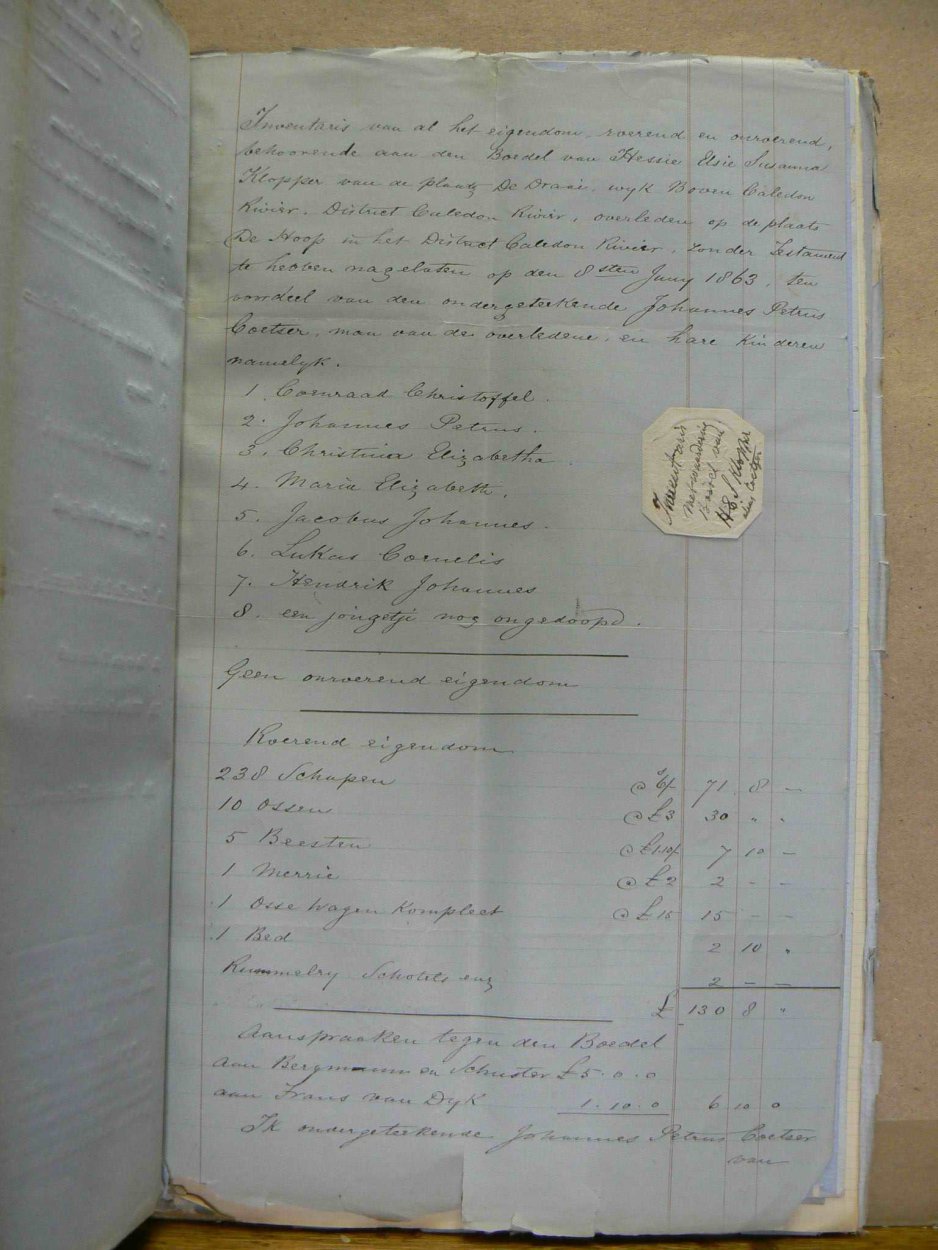 Inventaris van al het eigendom, roerend en onroerend,
behoorende aan den Boedel van Hessie Elsie Susanna
Klopper van de plaats De Draai, wyk Boven Caledon
Rivier, District Caledon Rivier, overleden op de plaats
De Hoop in het District Caledon Rivier, zonder Testament
te hebben nagelaten op den 8sten Juny 1863, ten
voordeel van den ondergeteekende Johannes Petrus
Coetser, man van de overledene, en hare Kinderen
namelyk.
1. Coenraad Christoffel.
2. Johannes Petrus.
3. Christina Elizabetha
4. Maria Elizabeth.
5. Jacobus Johannes.
6. Lukas Cornelis
7. Hendrik Johannes
8. een jongetje nog ongedoopd.
Inventaris
Boedel van
H E S Klopper
Geen onroerend eigendom
Roerend eigendom
238 Schapen @ 6/ 71 8 -
10 Ossen @ £3 30 " "
5 Beesten @ £1.10/ 7 10 -
1 Merrie @ £2 2 - -
1 Osse Wagen Kompleet @ £15 15 - -
1 Bed 2 10 "
Rummelry Schotels enz 2 - -
£ 130 8 "
Aanspraaken tegen den Boedel
aan Bergmann en Schuster £5.0.0
aan Frans van Dyk 1.10.0 6 10 0
Ik ondergeteekende Johannes Petrus Coetser
van